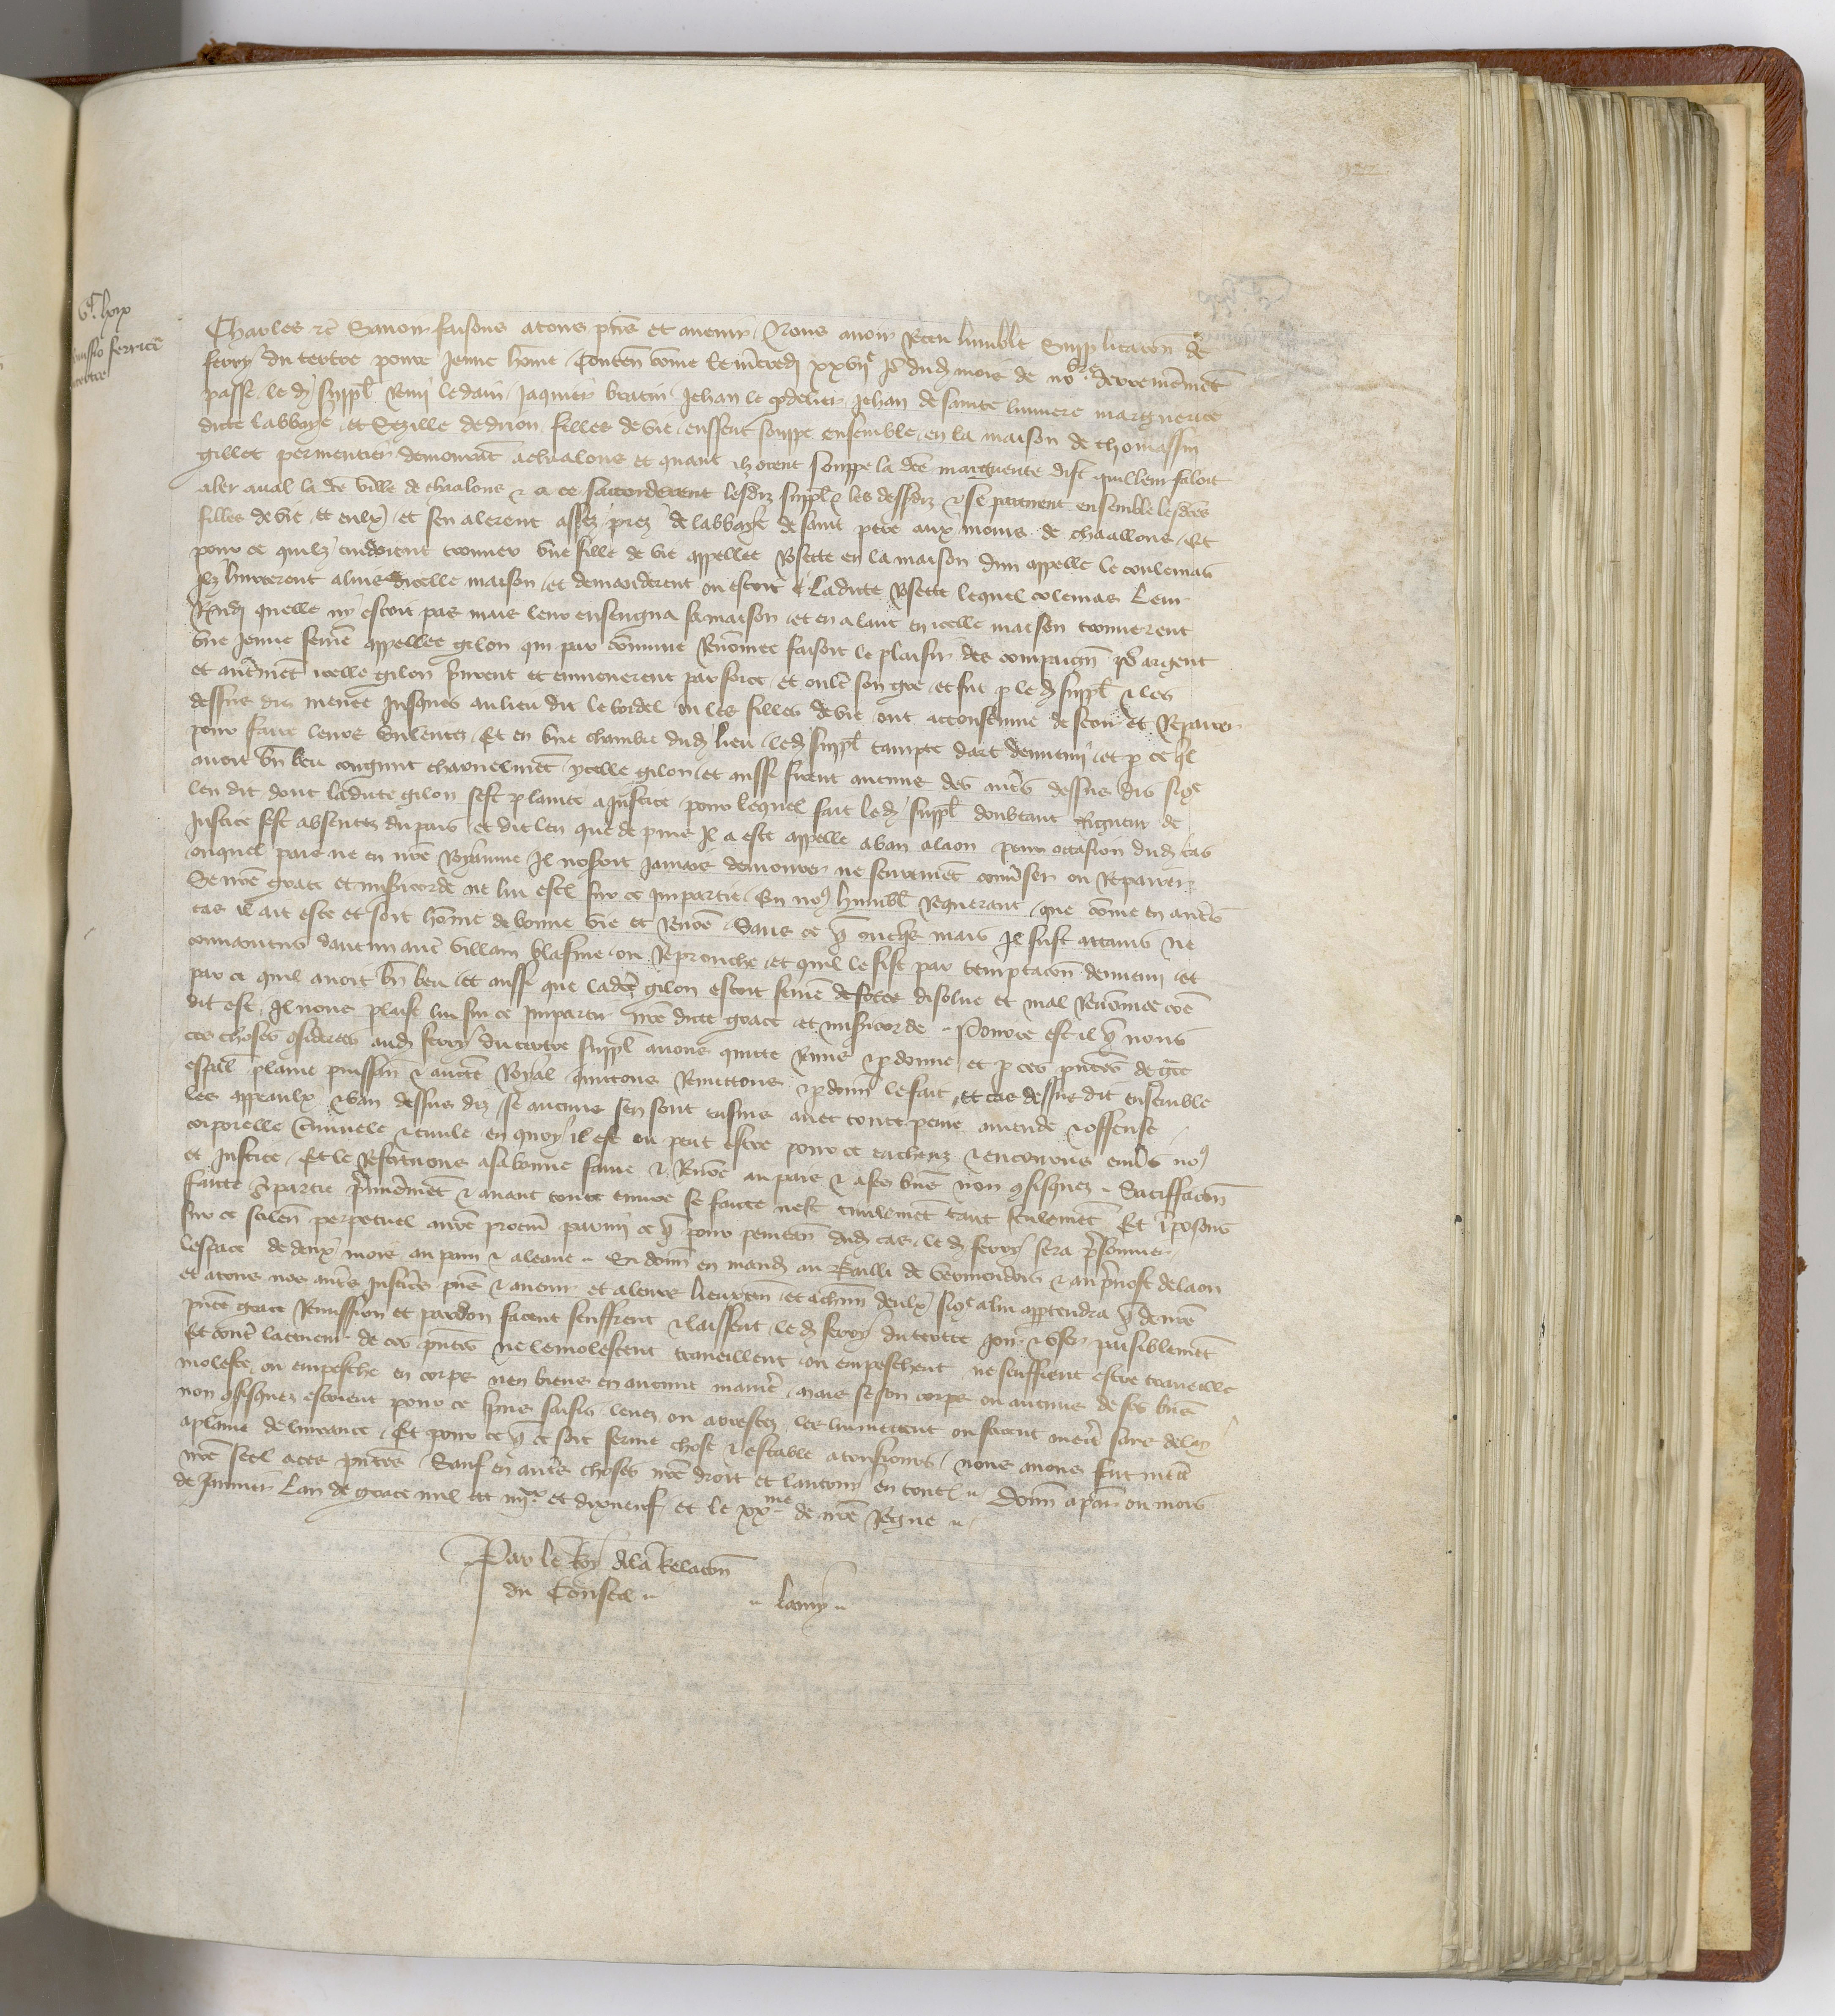 Charles etc Savoir faisons a tous pñs et avenir Nous avoir Receu lumble Supplicacõn de
ferry du tertre povre jeune hõme Contenñ cõme le mercredi xxvije Jor dud mois de novbre derrenieremẽt
passe led suppl Remy le dain Jaquier Jehan le cordelier Jehan de sainte lumiere marguerite
dicte labbaye et Sezille de dijon filles de vie eussent souppe ensemble en la maison de thomassin
gillet permentier demourãt a chaalons et quant ilz orent souppe la dce marguerite dist quil leur faloit
aler aval la dce ville de chaalons et a ce saccorderent lesdiz suppl et les dessdiz et se partirent ensemble lesdces
filles de vie et eulx et sen alerent assez prez de labbaye de saint pere aux moins de chaallons Et
pour ce quilz cuidoient trouver une fille de vie appellee Rosette en la maison dun appelle le coulemas
ilz hurterent a luis dicelle maison et demanderent ou estoit ladicte Rosette lequel colemas leur
Rñdi quelle ny estoit pas mais leur enseigna sa maison et en alant en icelle maison trouverent
une jeune femẽ appellee gilon qui par cõmune Renõmee faisoit le plaisir des compaignõ por argent
et autremẽt icelle gilon prinrent et emmenerent par force et oultre son gre et fut p led suppl et les
dessus dis menee jusques au lieu dit le bordel ou les filles de vie ont acoustume de seoir et Repairer
pour faire leurs voulentez Et en une chambre dud lieu led suppl tempte dart denemi et p ce quil
avoit bñ beu congnut charnelmẽt ycelle gilon et aussi firent aucuns des autres dessus dis sicõe
len dit dont ladicte gilon sest plainte a justice pour lequel fait led suppl doubtant Rigueur de
Justice sest absentez du pais et dit len que depuis Il a este appelle a ban a laon pour occasion dud cas
ouquel pais ne en nre Royaume Il noseroit jamais demourer ne seuremẽt converser ou Repairer
Se nre grace et misericorde ne lui estoit sur ce impartie En nous humblt Requerant que cõme en autres
cas il ait este et soit hõme de bonne vie et Renõe Sans ce q onques mais Il fust attains ne
convaincus daucun autre villain blasme ou Reprouche et quil le fist par temptacõn denemi et
par ce quil avoit bñ beu et aussi que ladce gilon estoit femẽ disolue et mal Renõmee cõe
dit est Il nous plaise lui sur ce impartir nre dicte grace et misericorde Pour ce est il q nous
ces choses cõsiderees aud ferry du tertre suppl avons quitte Remis et pdonne et p ces pñtes de grãce
especl plaine puissãn et auctte Royal quittons Remettons et pdonñ le fait et cas dessus dit ensemble
les appeaulx et ban dessus diz se aucuns sen sont ensuis avec toute peine amende et offense
corporelle criminele et civile en quoy il est ou peut estre pour ce encheuz et encourus envers nous
et justice Et le Restituons a sa bonne fame et Renõe au pais et a ses biens non cõfisquez Satiffacõn
faicte a partie premieremẽt et avant toute euvre se faicte nest civilemẽt tant seulemẽt Et imposons
sur ce scilenẽ perpetuel a nre procur parmi ce q pour penitẽn dud cas led ferry sera prisonnier
lespace de deux mois au pain et a leaue Si donñ en mandẽ au Bailli de vermendois et au prevost de laon
et a tous nos autres justiciers pñs et avenir et a leurs lieuxtenñ et a chun deulx sicõe a lui appartendra q de nre
pñte grace Remission et pardon facent seuffrent et laissent led ferry du tertre joir et user paisiblemẽt
Et contre la teneur de ces pñtes ne le molestent traveillent ou empeschent ne seuffrent estre traveille
moleste ou empesche en corps nen biens en aucune maniere mais se son corps ou aucuns de ses biens
non cõfisquez estoient pour ce prins saisis levez ou arrestez les lui mettent ou facent mettre sans delay
a plaine delivrance Et pour ce q ce soit ferme chose et estable a tousjours nous avons fait mettre
nre seel a ces pñtes Sauf en autres choses nre droit et lautruy en toutes Donñ a paris ou mois
de janvier Lan de grace mil ccc iiijxx et dixneuf et le xxme de nre Regne
Par le Roy a la Relacõn
du Conseil lamy